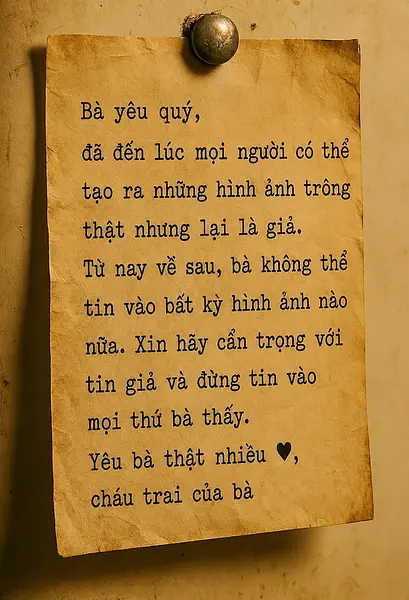 Bà yêu quý,
đã đến lúc mọi người có thể
tạo ra những hình ảnh trông
thật nhưng lại là giả.
Từ nay về sau, bà không thể
tin vào bất kỳ hình ảnh nào
nữa. Xin hãy cẩn trọng với
tin giả và đừng tin vào
mọi thứ bà thấy.
Yêu bà thật nhiều ♥,
cháu trai của bà